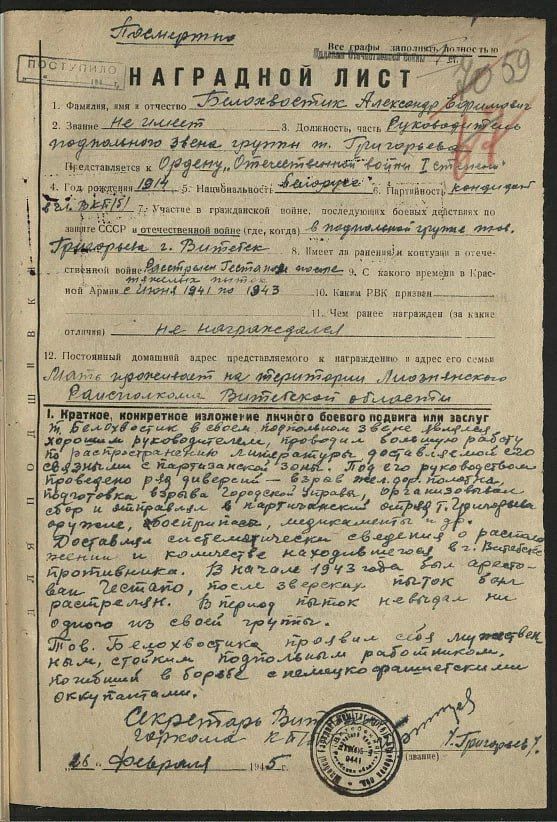 Посмертно
Все графы заполнять полностью
Орденом Отечественной войны I ст.
ПОСТУПИЛО
70 59
НАГРАДНОЙ ЛИСТ
1. Фамилия, имя и отчество Белохвостик Александр Ефимович
2. Звание не имеет 3. Должность, часть Руководитель
подпольного звена группы т. Григорьева
Представляется к Ордену „Отечественной войны I степени
4. Год рождения 1914 5. Национальность Белорусс 6. Партийность кандидат
ВКП/б/ 7. Участие в гражданской войне, последующих боевых действиях по
защите СССР и отечественной войне (где, когда) в подпольной группе тов.
Григорьева г. Витебск 8. Имеет ли ранения и контузии в отече-
ственной войне Расстрелян Гестапо после
тяжелых пыток 9. С какого времени в Крас-
ной Армии с Июня 1941 по 1943 10. Каким РВК призван
11. Чем ранее награжден (за какие
отличия) не награждался
12. Постоянный домашний адрес представляемого к награждению и адрес его семьи
Мать проживает на територии Лиознянского
Райисполкома Витебской области
I. Краткое, конкретное изложение личного боевого подвига или заслуг
т. Белохвостик в своем подпольном звене являлся
хорошим руководителем, проводил большую работу
по распространению литературы доставляемой его
связными с партизанской зоны. Под его руководством
проведено ряд диверсий – взрыв жел. дор. полотна,
подготовка взрыва Городской Управы, организовывал
сбор и отправлял в партизанский отряд т. Григорьева
оружие, боеприпасы, медикаменты и др.
Доставлял систематически сведения о располо
жении и количестве находившегося в г. Витебске
противника. В начале 1943 года был аресто-
ван Гестапо, после зверских пыток был
расстрелян. В период пыток невыдал ни
одного из своей группы.
Тов. Белохвостик проявил себя мужествен-
ным, стойким подпольным работником,
погибший в борьбе с немецко-фашистскими
оккупантами.
Секретарь Вит
горкома КП/
/Григорьев/
(звание)
26 февраля 1945 г.
ДЛЯ ПОДШИВКИ